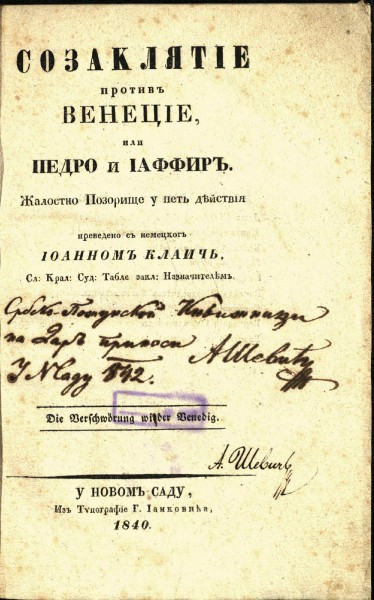 СОЗАКЛЯТІЕ
противъ
ВЕНЕЦІЕ,
или
ПЕДРО и ІАФФИРЪ.
Жалостно Позорище у петь дѣйствія
преведено съ немецкогъ
ІОАННОМЪ КЛАИЧЬ,
Сл: Крал: Суд: Табле закл: Назначителѣмъ.
на Даръ приноси АШевићъ
У NСаду 842.
Die Verschwörung wider Venedig.
А. Шевићъ
У НОВОМЪ САДУ,
Изъ Тѵпографіе Г. Іанковића,
1840.